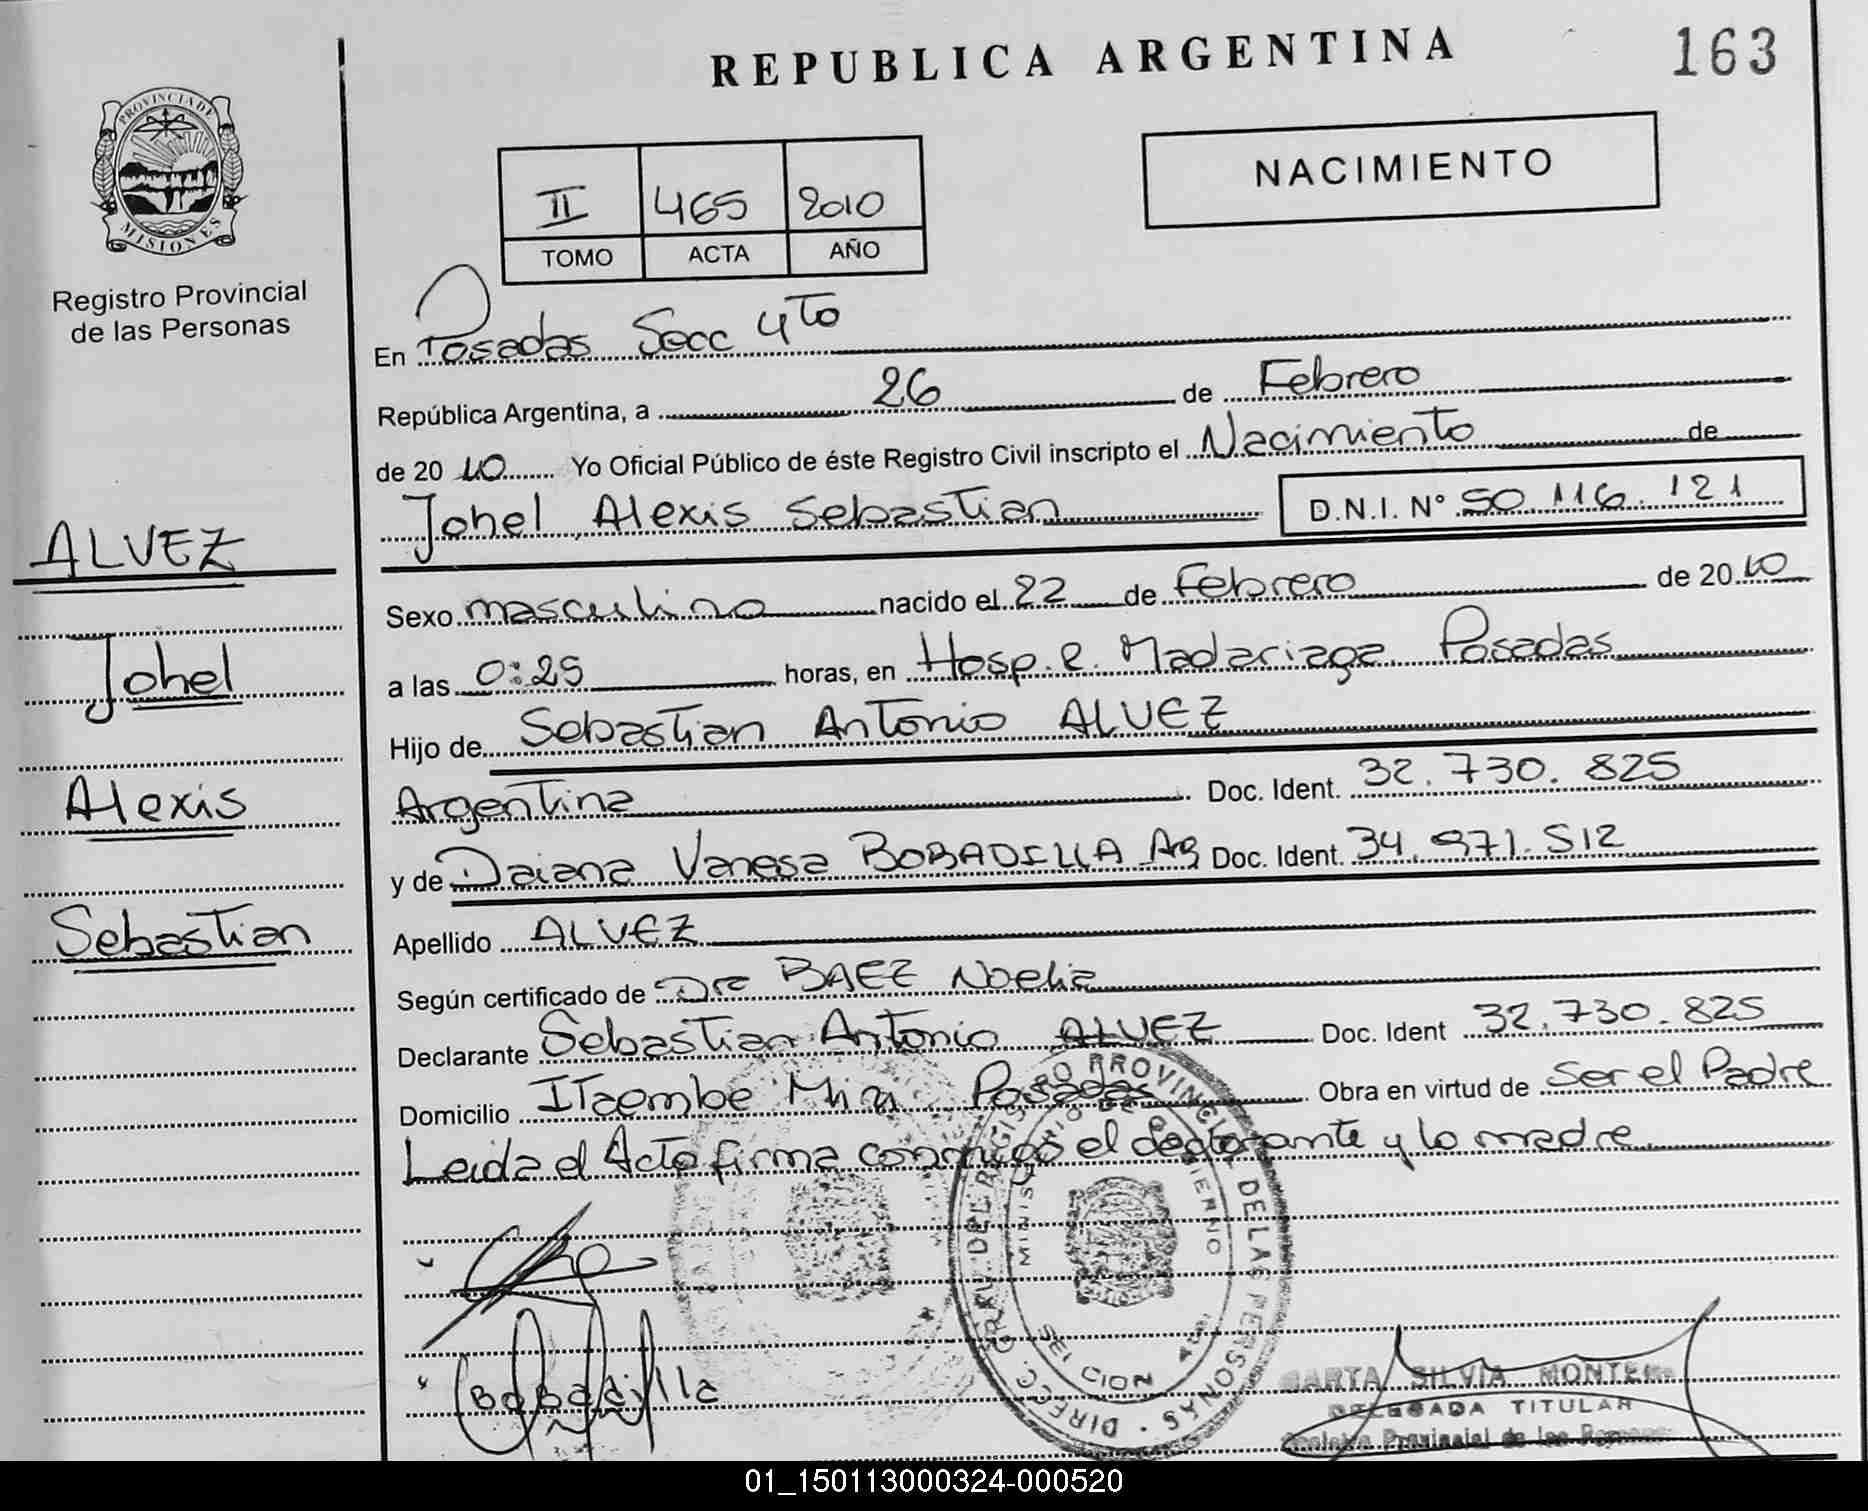 REPUBLICA ARGENTINA
163
PROVINCIA DE
MISIONES
Registro Provincial
de las Personas
II 465 2010
TOMO ACTA AÑO
NACIMIENTO
En Posadas Secc 4To
República Argentina, a 26 de Febrero
de 2010 Yo Oficial Público de éste Registro Civil inscripto el Nacimiento de
Johel Alexis Sebastian D.N.I. N° 50.116.121
ALVEZ
Johel
Alexis
Sebastian
Sexo masculino nacido el 22 de Febrero de 2010
a las 0:25 horas, en Hosp. R. Madariaga Posadas
Hijo de Sebastian Antonio ALVEZ
Argentina Doc. Ident. 32.730.825
y de Daiana Vanesa BOBADILLA Ag Doc. Ident. 34.971.512
Apellido ALVEZ
Según certificado de Dra BAEZ Noelia
Declarante Sebastian Antonio ALVEZ Doc. Ident 32.730.825
Domicilio ITaembe Mini Posadas Obra en virtud de Ser el Padre
Leida el Acta firma conmigo el declarante y la madre
DIRECC. GRAL. DEL REGISTRO PROVINCIAL DE LAS PERSONAS
MINISTERIO DE GOBIERNO
Bobadilla
MARTA SILVIA MONTERO
DELEGADA TITULAR
Registro Provincial de las Personas
01_150113000324-000520